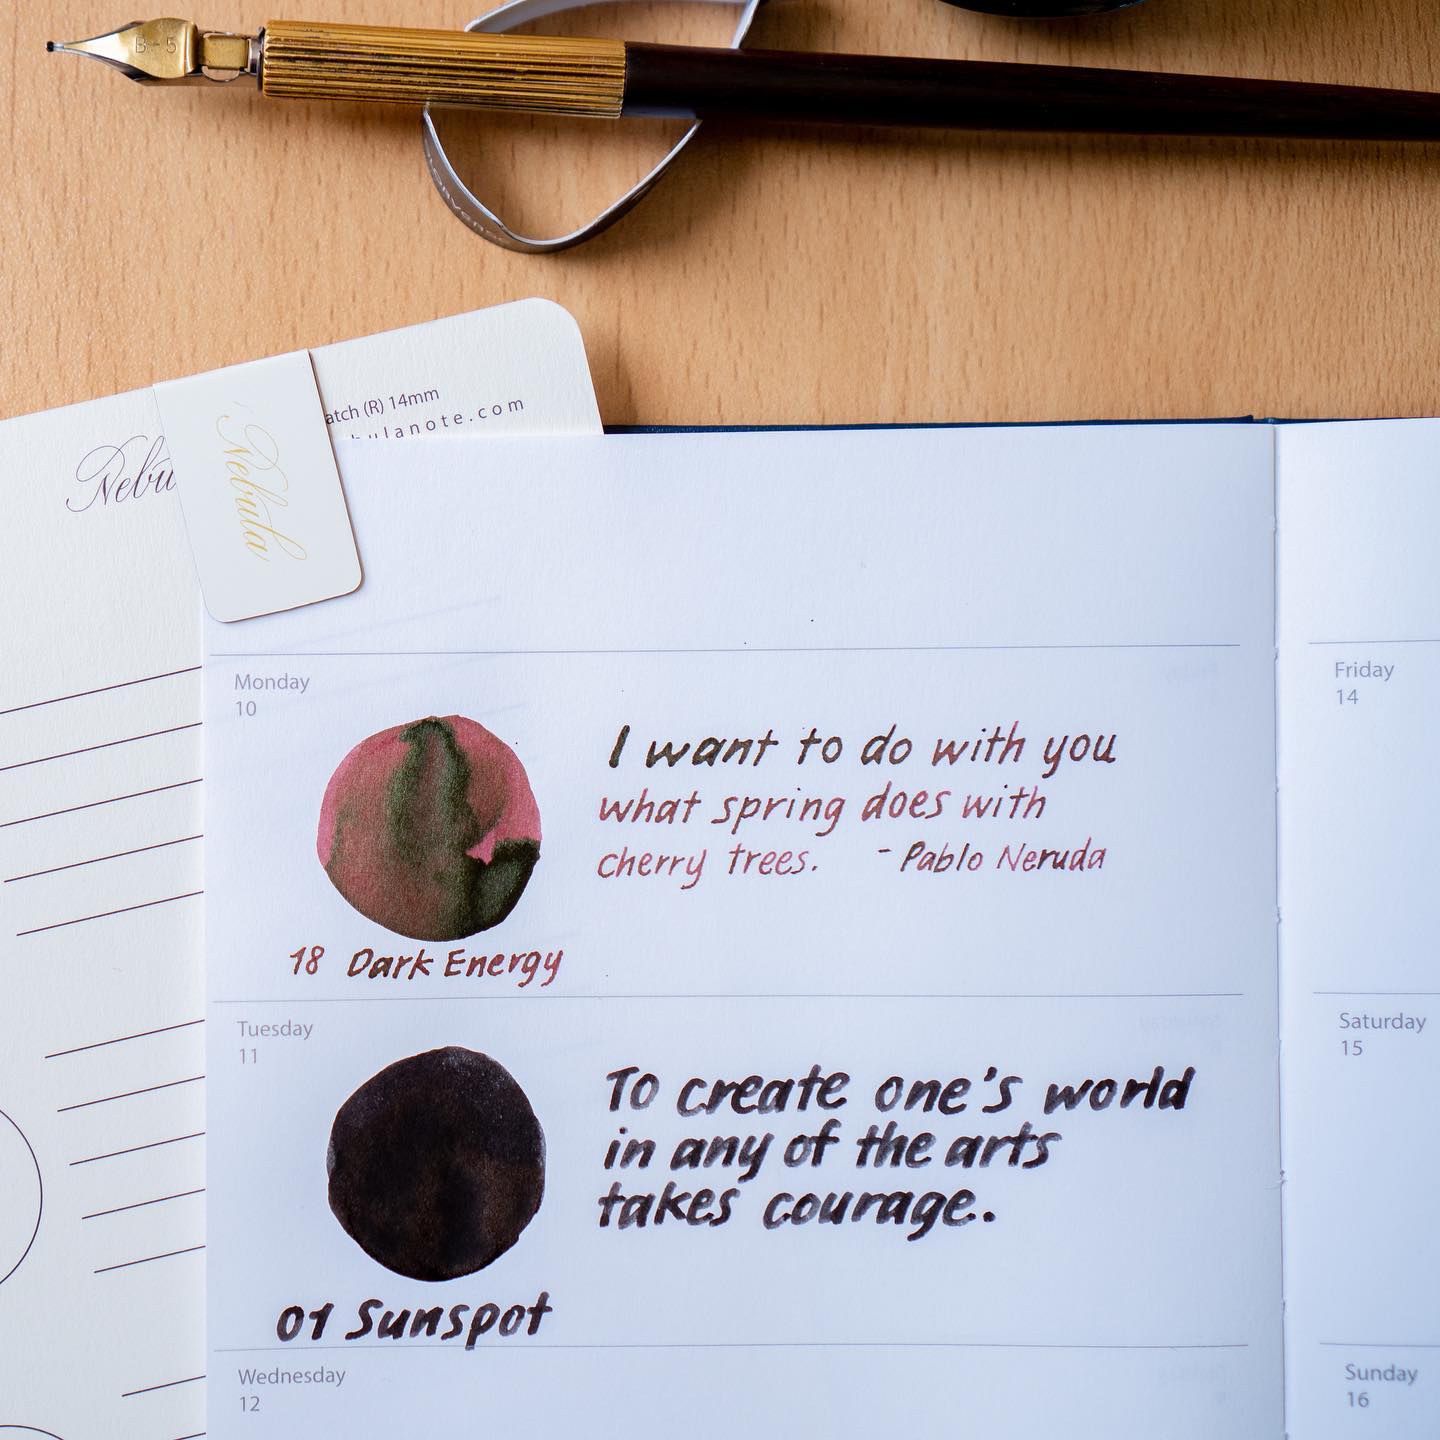 B-5
atch (R) 14mm
bulanote.com
Nebu
Nebula
Monday
10
I want to do with you
what spring does with
cherry trees. - Pablo Neruda
18 Dark Energy
Tuesday
11
To create one's world
in any of the arts
takes courage..
01 Sunspot
Wednesday
12
Friday
14
Saturday
15
Sunday
16